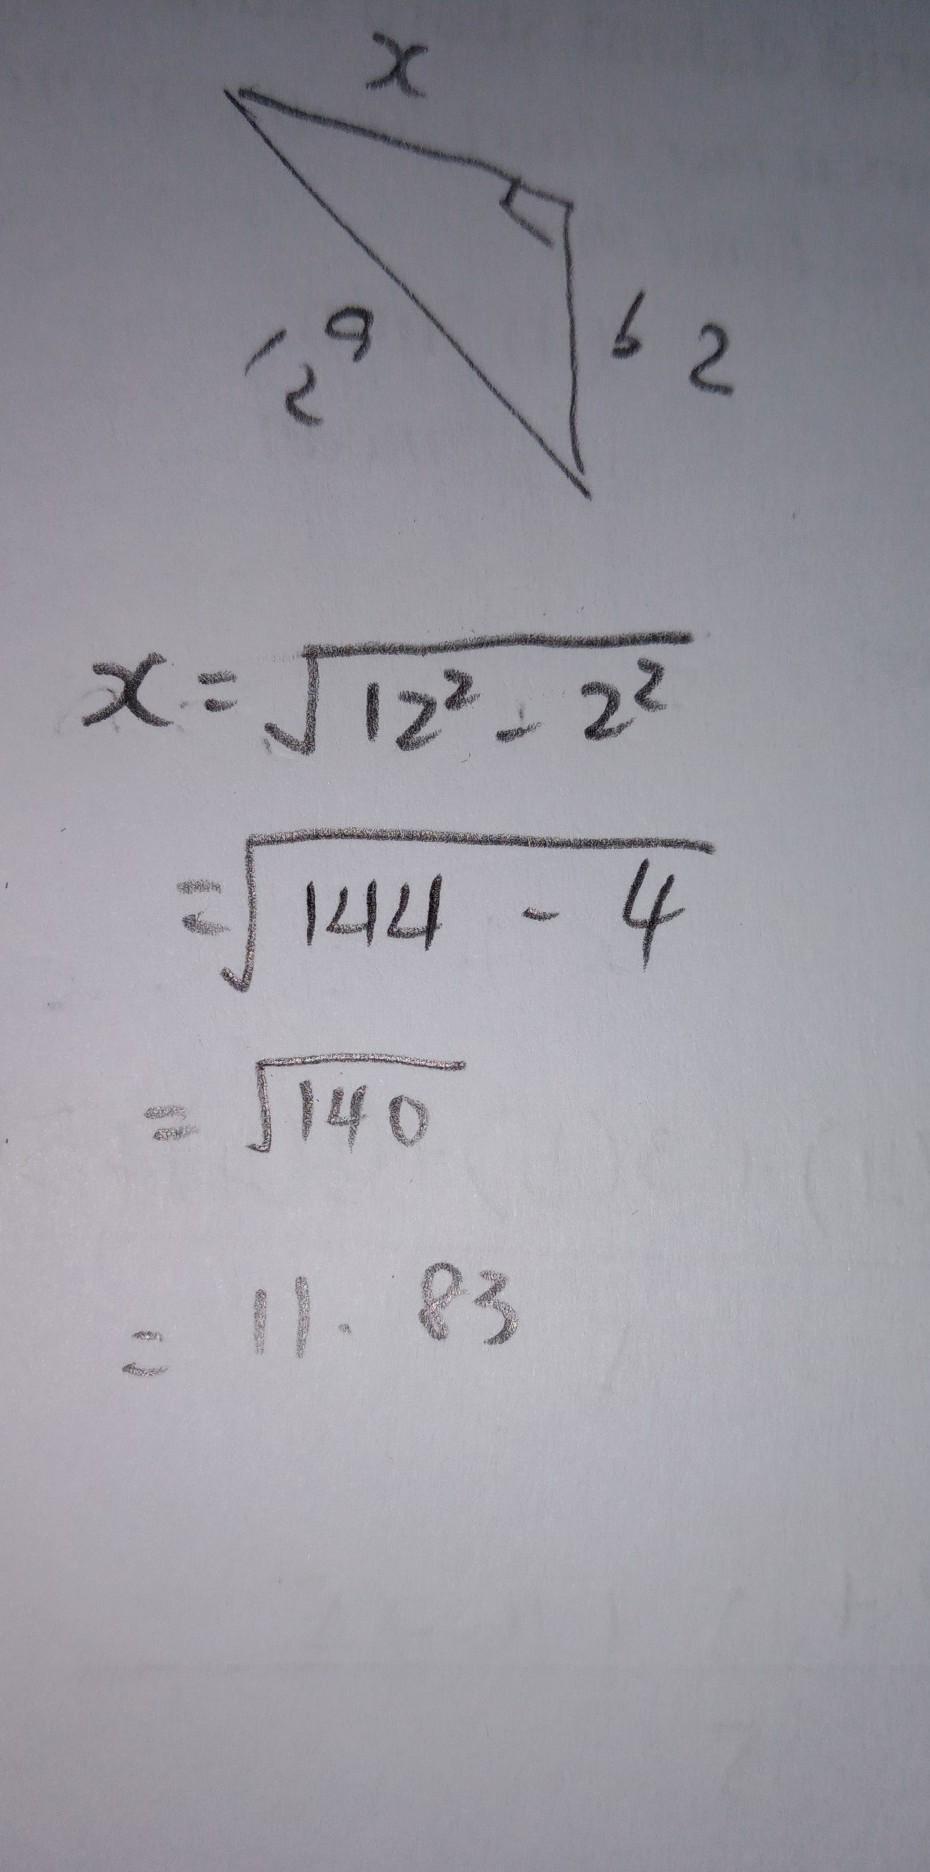 x
9
12
6 2
x = √12² - 2²
= √144 - 4
= √140
= 11.83